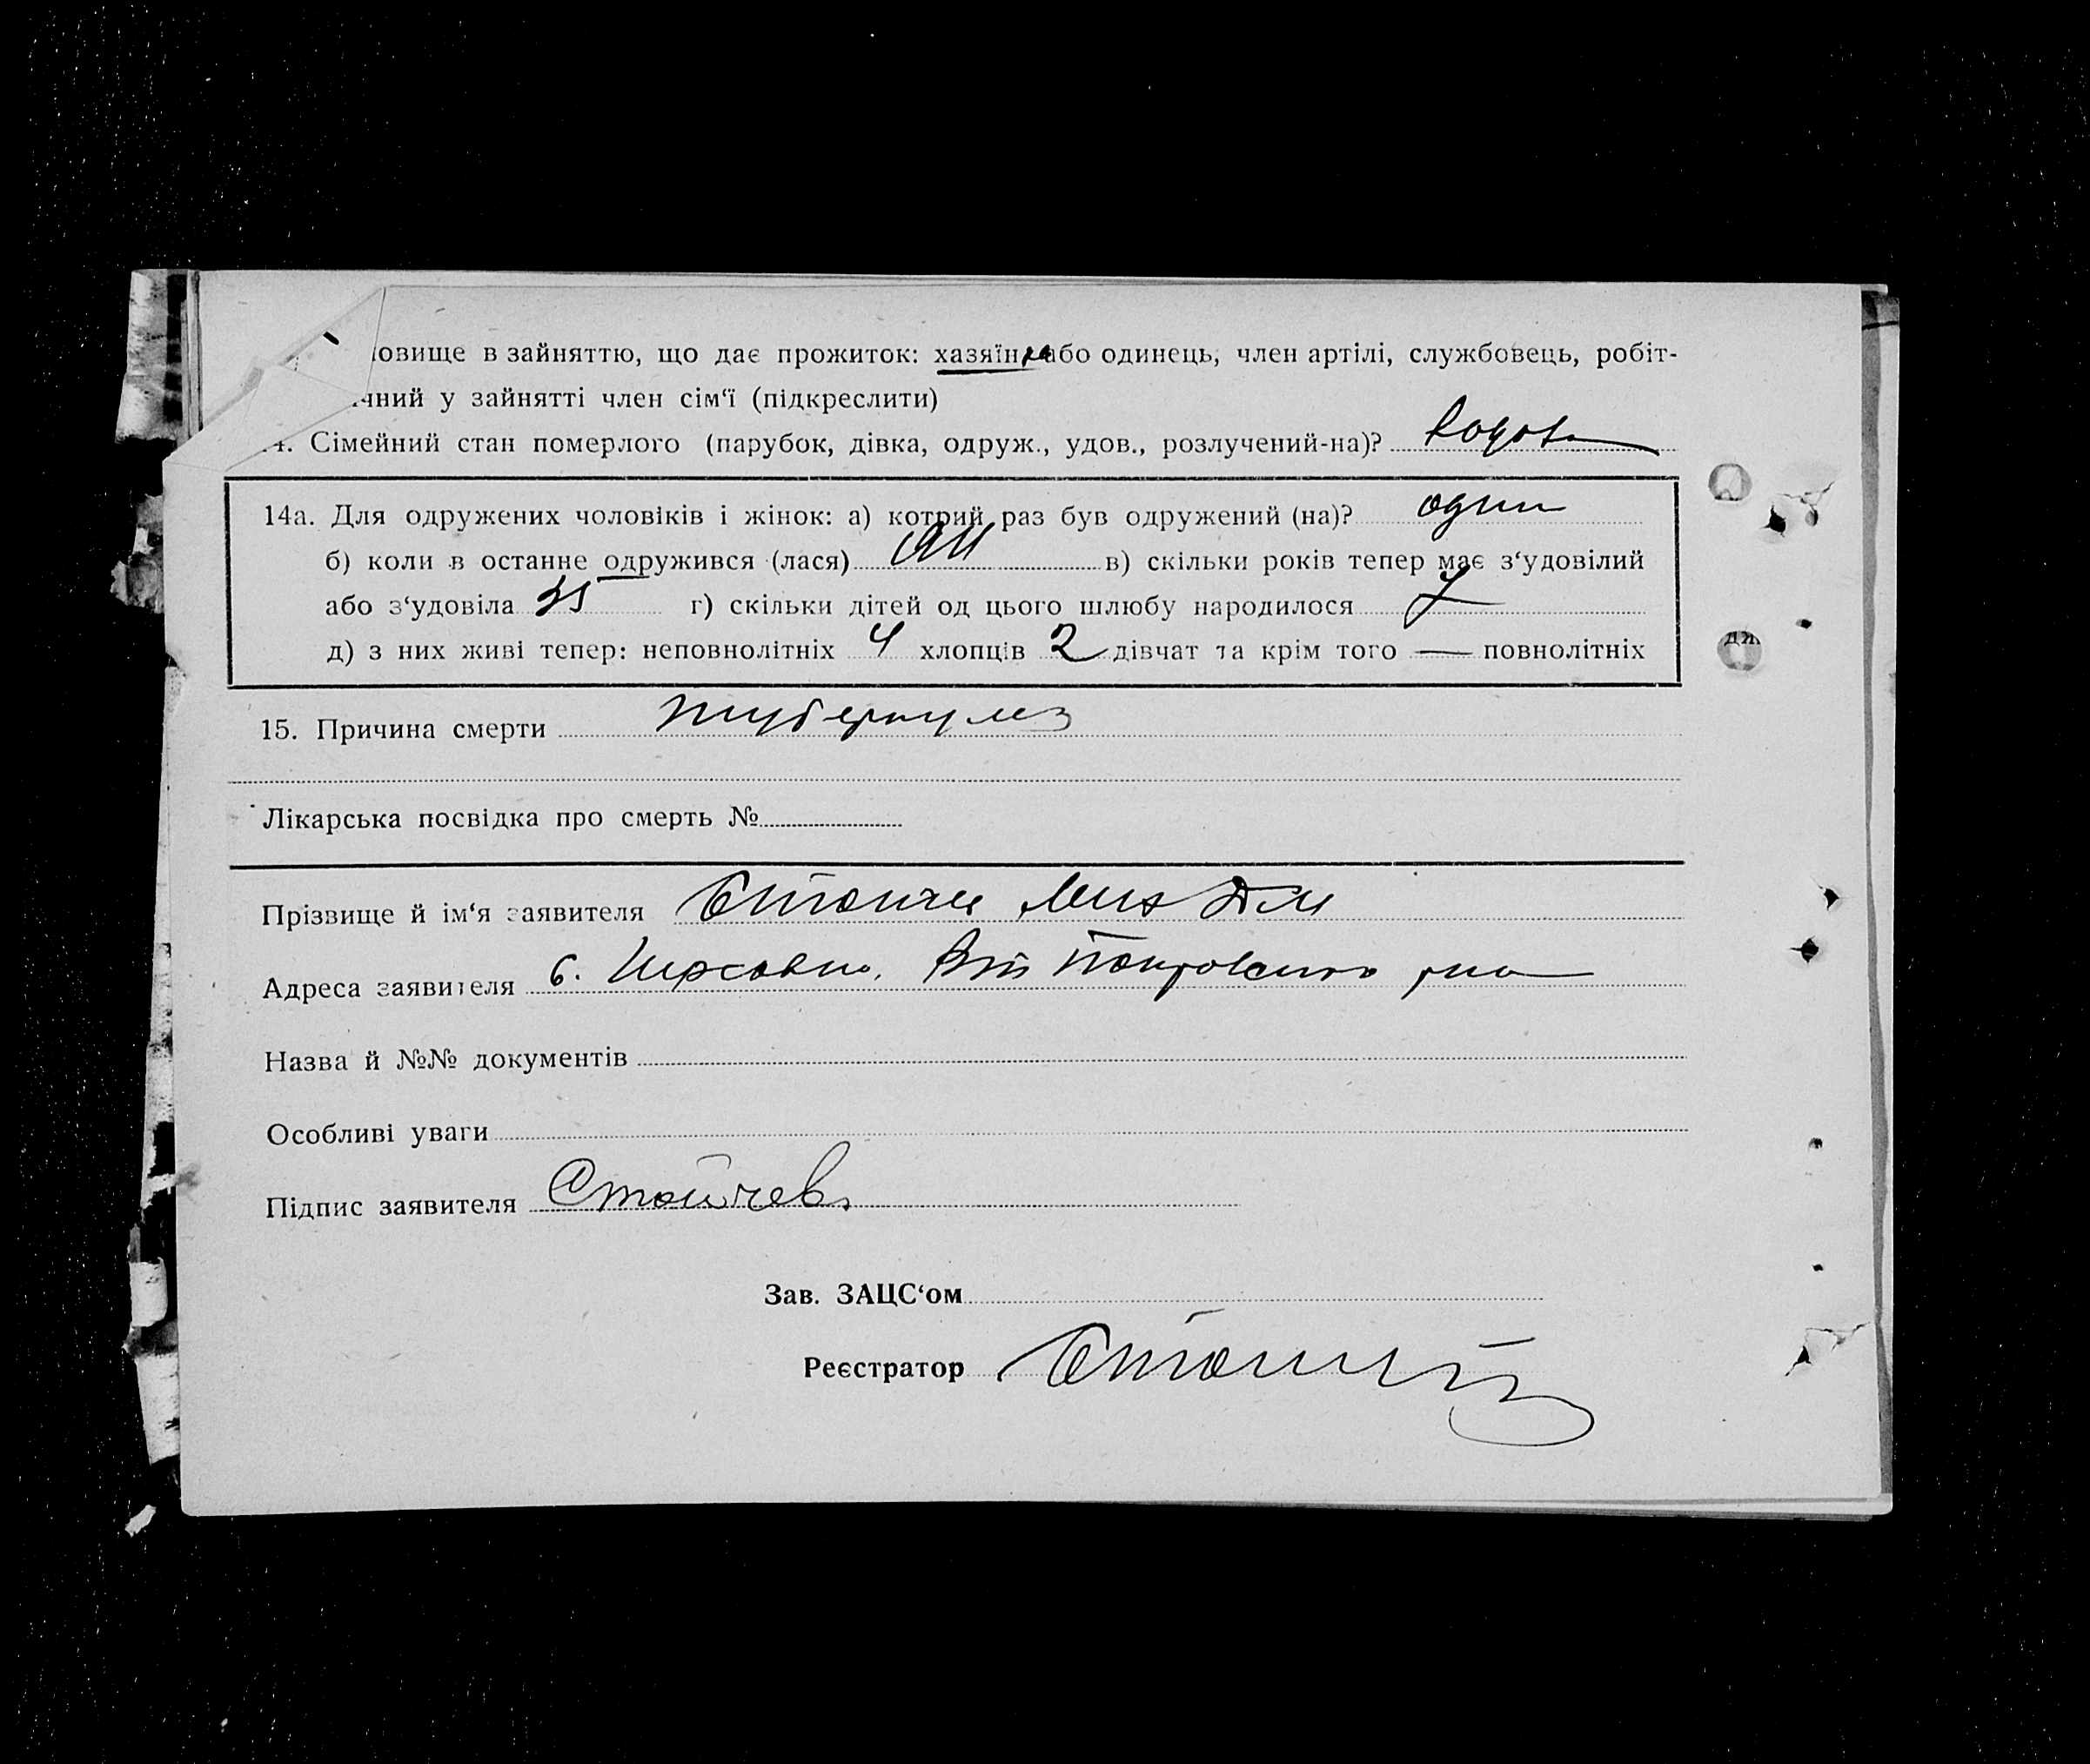 овище в зайняттю, що дає прожиток: хазяїн, або одинець, член артілі, службовець, робіт-
чний у зайнятті член сім‘ї (підкреслити)
4. Сімейний стан померлого (парубок, дівка, одруж., удов., розлучений-на)?
14а. Для одружених чоловіків і жінок: а) котрий раз був одружений (на)? один
б) коли в останне одружився (лася) в) скільки років тепер має з‘удовілий
або з‘удовіла г) скільки дітей од цього шлюбу народилося 7
д) з них живі тепер: неповнолітніх 4 хлопців 2 дівчат та крім того — повнолітніх
15. Причина смерти туберкулез
Лікарська посвідка про смерть №
Прізвище й ім‘я заявителя Стойчев Мих Дм
Адреса заявителя с. Покровского р-на
Назва й №№ документів
Особливі уваги
Підпис заявителя Стойчев
Зав. ЗАЦС‘ом
Реєстратор